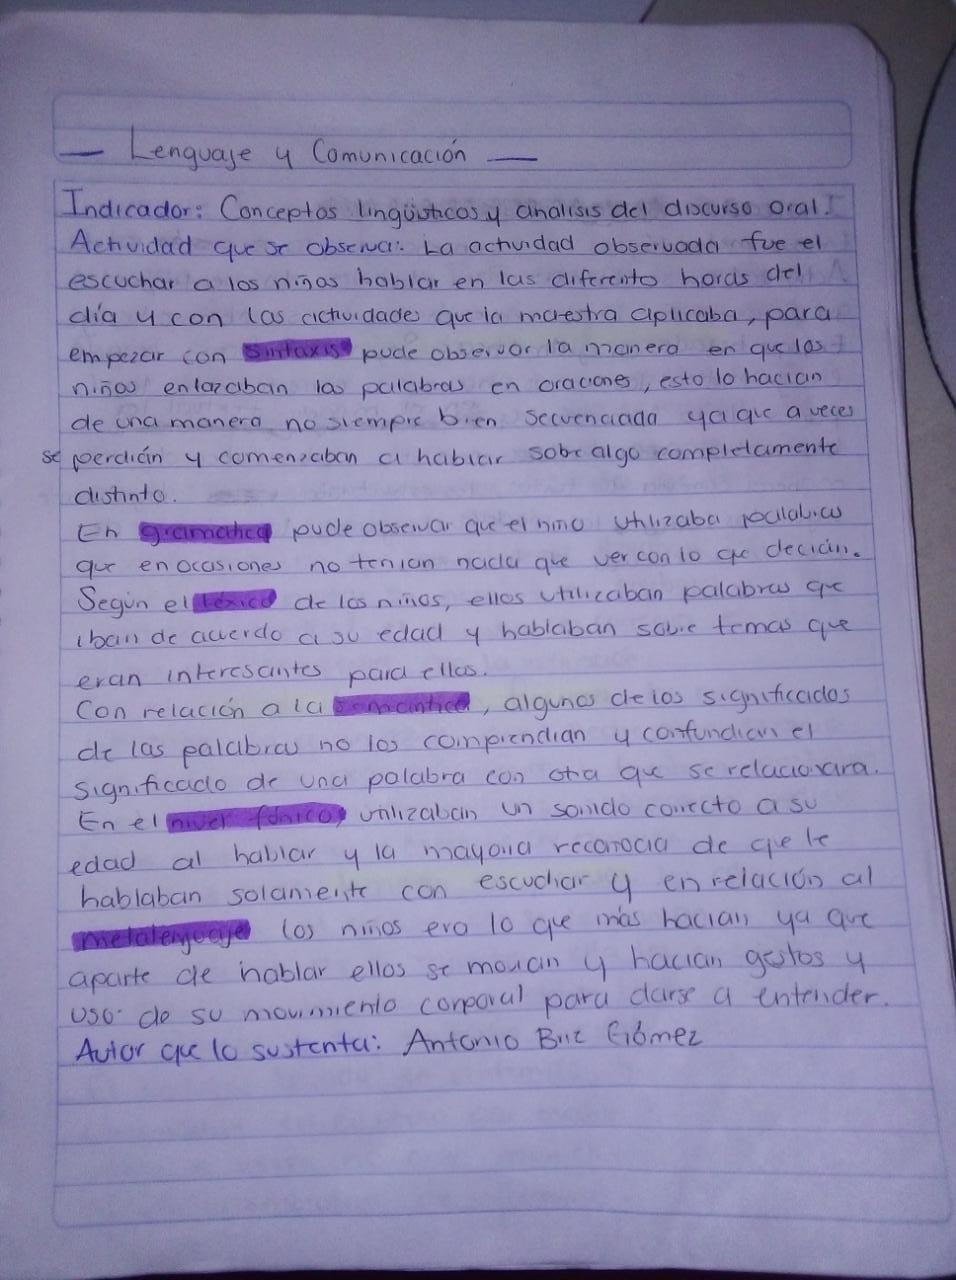 — Lenguaje y Comunicación —
Indicador: Conceptos lingüisticos y analisis del discurso oral.
Actividad que se observa: La actividad observada fue el
escuchar a los niños hablar en las diferento horas del
día y con las actividades que la maestra aplicaba, para
empezar con sintaxis pude observar la manera en que los
niños enlazaban las palabras en oraciones, esto lo hacian
de una manera no siempre bien secuenciada ya que a veces
se perdián y comenzaban a hablar sobre algo completamente
distinto.
En gramatica pude observar que el niño utilizaba palabras
que en ocasiones no tenian nada que ver con lo que decián.
Según el léxico de los niños, ellos utilizaban palabras que
iban de acuerdo a su edad y hablaban sobre temas que
eran interesantes para ellos.
Con relación a la semantica, algunos de los significados
de las palabras no los comprendian y confundian el
significado de una palabra con otra que se relacionara.
En el nivel fónico, utilizaban un sonido correcto a su
edad al hablar y la mayoria reconocia de que le
hablaban solamente con escuchar y en relación al
metalenguaje los niños era lo que más hacian ya que
aparte de hablar ellos se movian y hacian gestos y
uso de su movimiento corporal para darse a entender.
Autor que lo sustenta: Antonio Briz Gómez